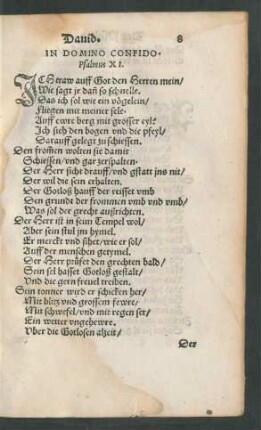 Dauid.
8
IN DOMINO CONFIDO.
Psalmus XI.
ICH traw auff Got den Herren mein/
Wie sagt jr dañ so schnelle.
Das ich sol wie ein vögelein/
Fliegen mit meiner sele.
Auff ewre berg mit grosser eyl/
Ich sich den bogen vnd die pfeyl/
Darauff gelegt zu schiessen.
Den frommen wolten sie damit
Schiessen/vnd gar zerspalten.
Der Herr sicht drauff/vnd gstatt jns nit/
Der wil die sein erhalten.
Der Gotloß hauff der reisset vmb
Den grundt der frommen vmb vnd vmb/
Was sol der grecht außrichten.
Der Herr ist in seim Tempel wol/
Aber sein stul jm hymel.
Er merckt vnd sihet/wie er sol/
Auff der menschen getymel.
Der Herr prüfet den grechten bald/
Sein sel hasset Gotloß gestalt/
Vnd die gern freuel treiben.
Sein tonner wird er schicken her/
Mit blitz vnd grossem fewre/
Mit schwefel/vnd mit regen ser/
Ein wetter vngehewre.
Vber die Gotlosen alzeit/
Der